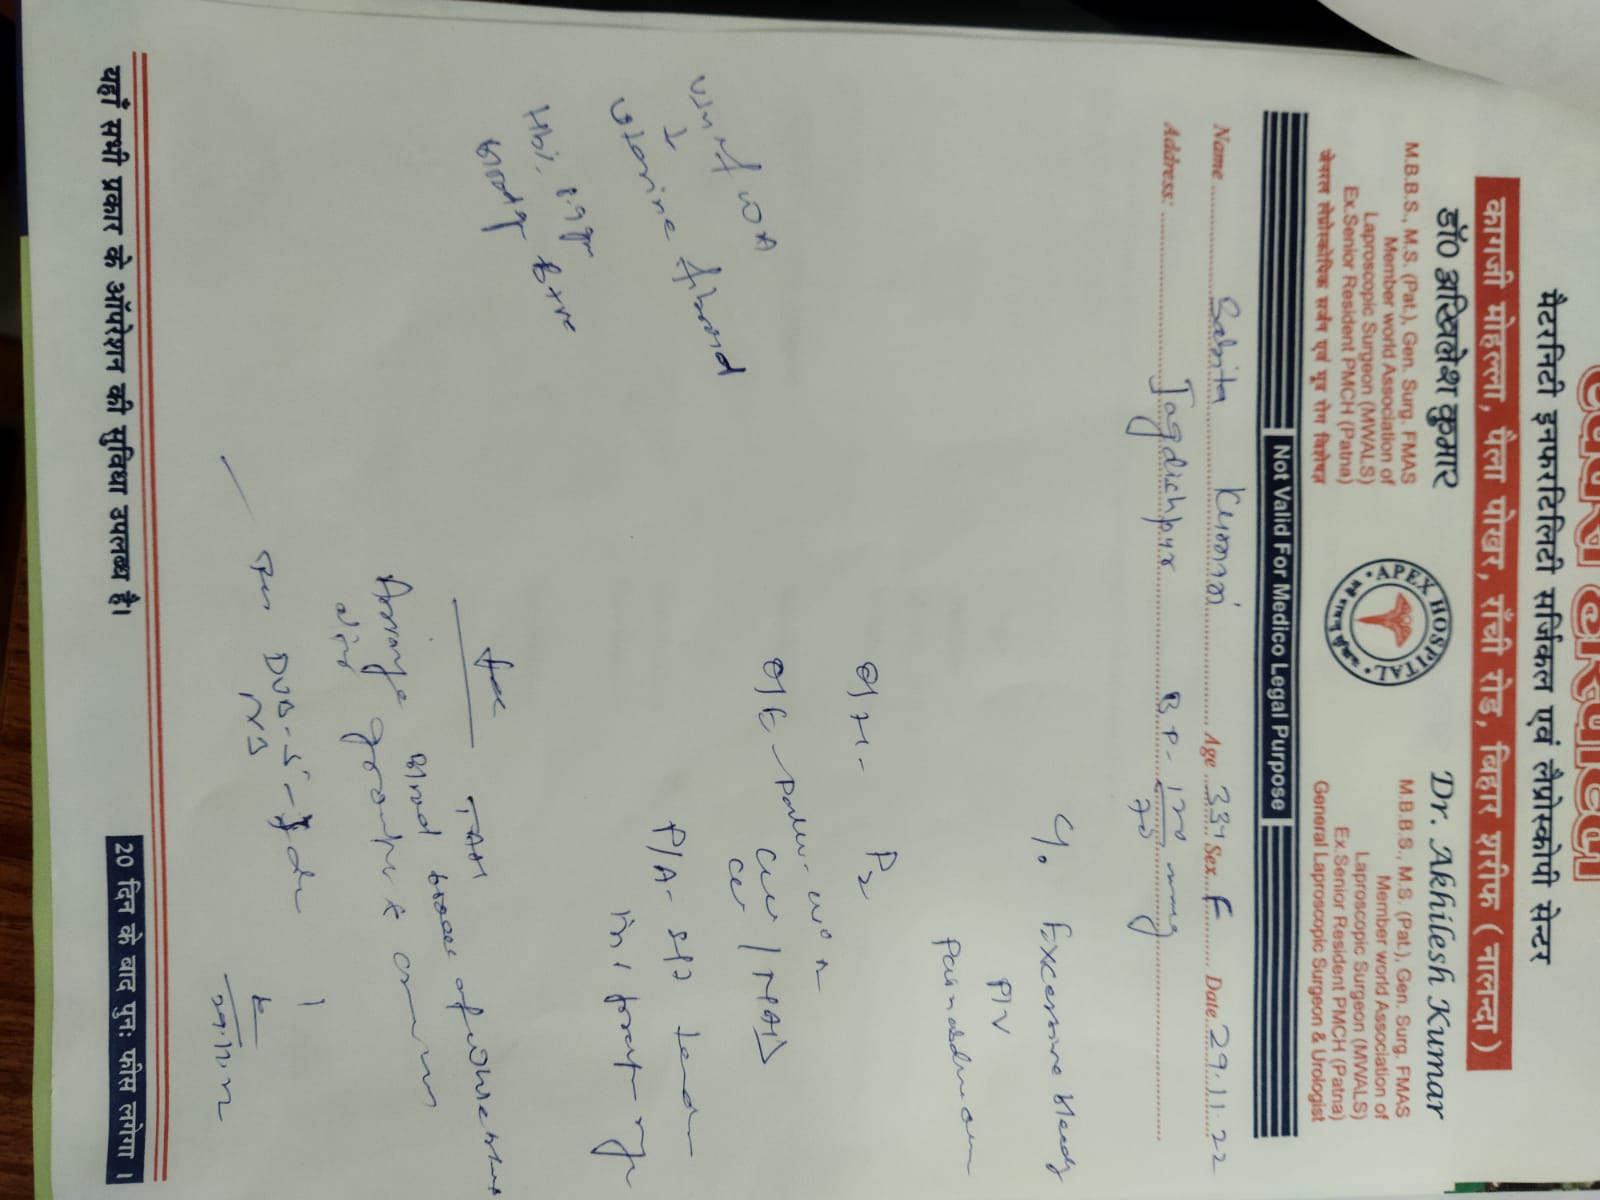 एपेक्स हॉस्पीटल
मैटरनिटी इनफरटिलिटी सर्जिकल एवं लैप्रोस्कोपी सेन्टर
कागजी मोहल्ला, पैला पोखर, राँची रोड, बिहार शरीफ ( नालन्दा )
डॉ० अखिलेश कुमार
M.B.B.S., M.S. (Pat.), Gen. Surg. FMAS
Member world Association of
Laproscopic Surgeon (MWALS)
Ex.Senior Resident PMCH (Patna)
जेनरल लेप्रोस्कोपिक सर्जन एवं मूत्र रोग विशेषज्ञ
APEX HOSPITAL
Dr. Akhilesh Kumar
M.B.B.S., M.S. (Pat.), Gen. Surg. FMAS
Member world Association of
Laproscopic Surgeon (MWALS)
Ex.Senior Resident PMCH (Patna)
General Laproscopic Surgeon & Urologist
Not Valid For Medico Legal Purpose
Name Sabita Kumari Age 33y Sex F Date 29.11.22
Address: Jagdishpur B.P- 120/70 mmHg
C/o Excessive Bleeding
P/V
Pain abdomen
O/H- P2
O/E - Pallor
P/A- soft
USG of W/A
Uterine fibroid
Hb% 8.9 gm
Blood gr B+ve
for TAH
Blood
Arrange group
29.11.22
यहाँ सभी प्रकार के ऑपरेशन की सुविधा उपलब्ध है।
20 दिन के बाद पुनः फीस लगेगा ।